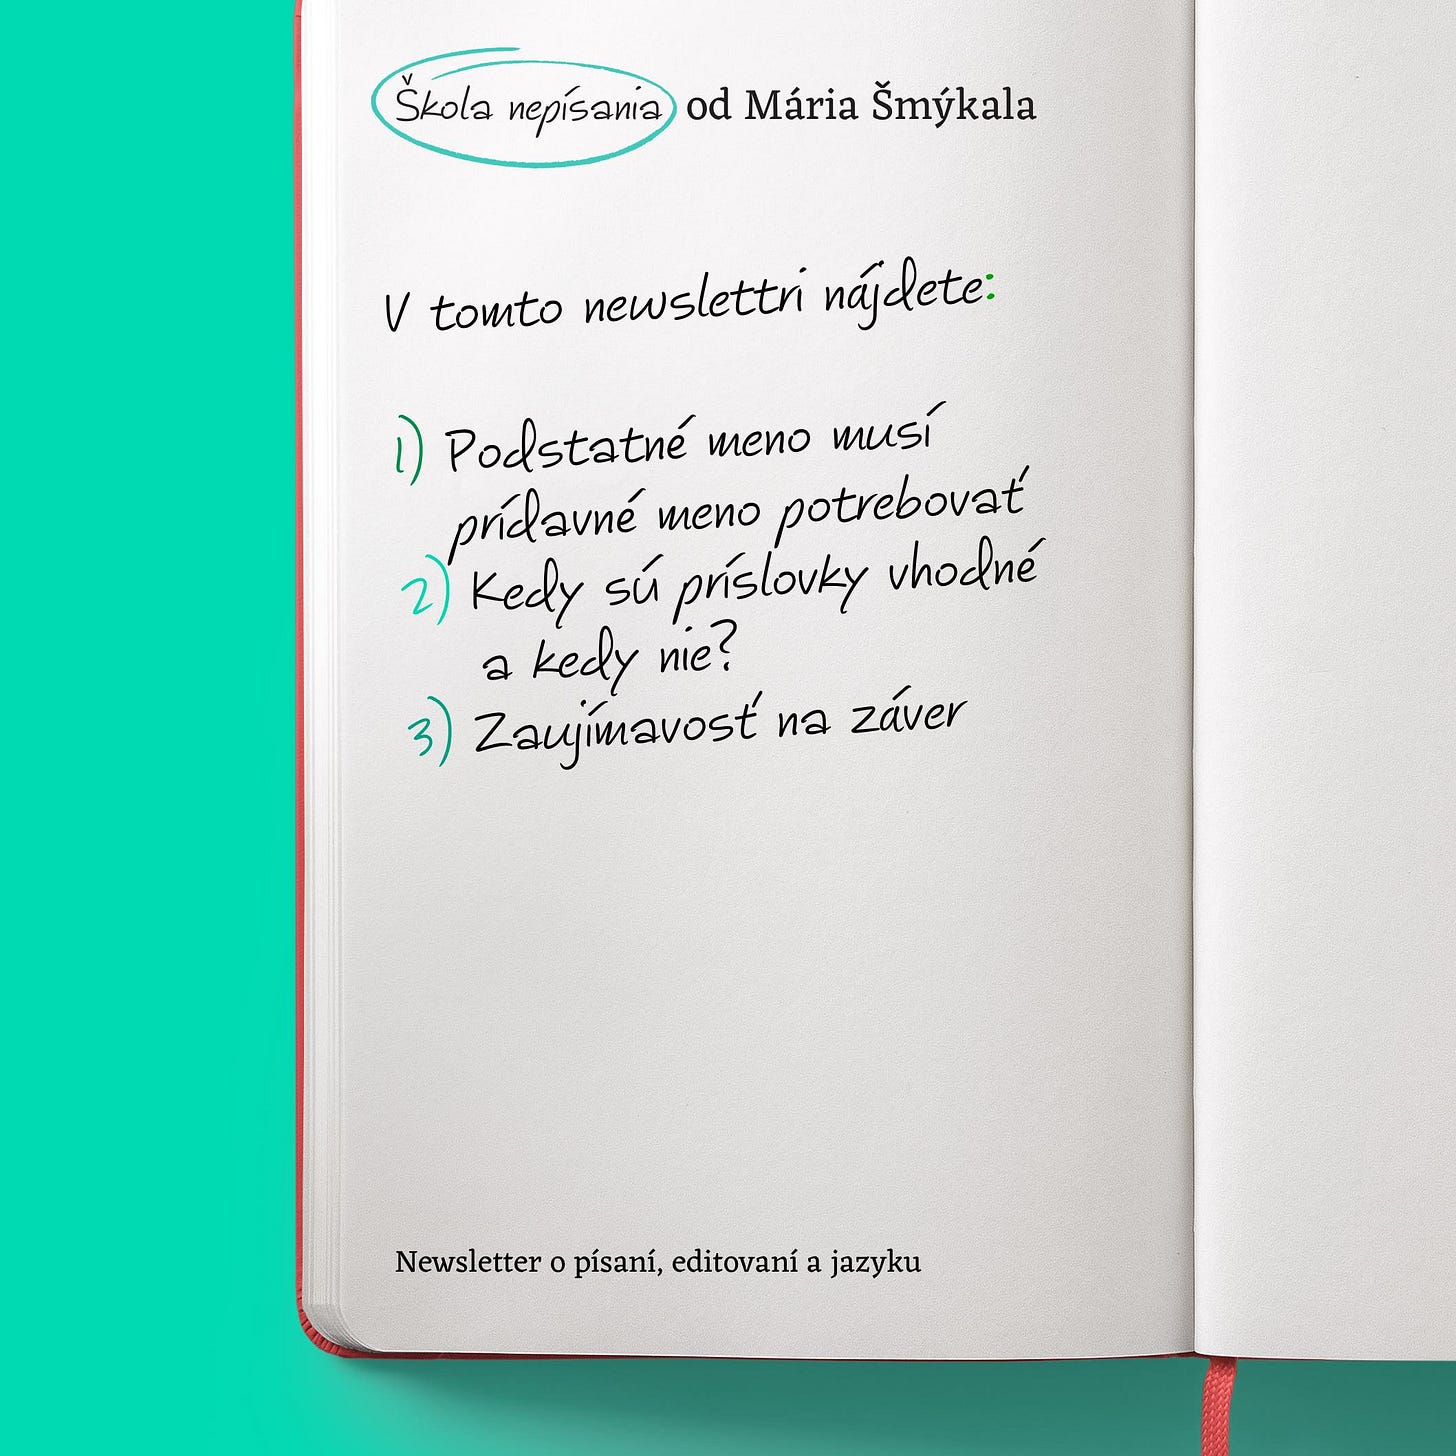 Škola nepísania od Mária Šmýkala
V tomto newslettri nájdete:
1) Podstatné meno musí
prídavné meno potrebovať
2) Kedy sú príslovky vhodné
a kedy nie?
3) Zaujímavosť na záver
Newsletter o písaní, editovaní a jazyku